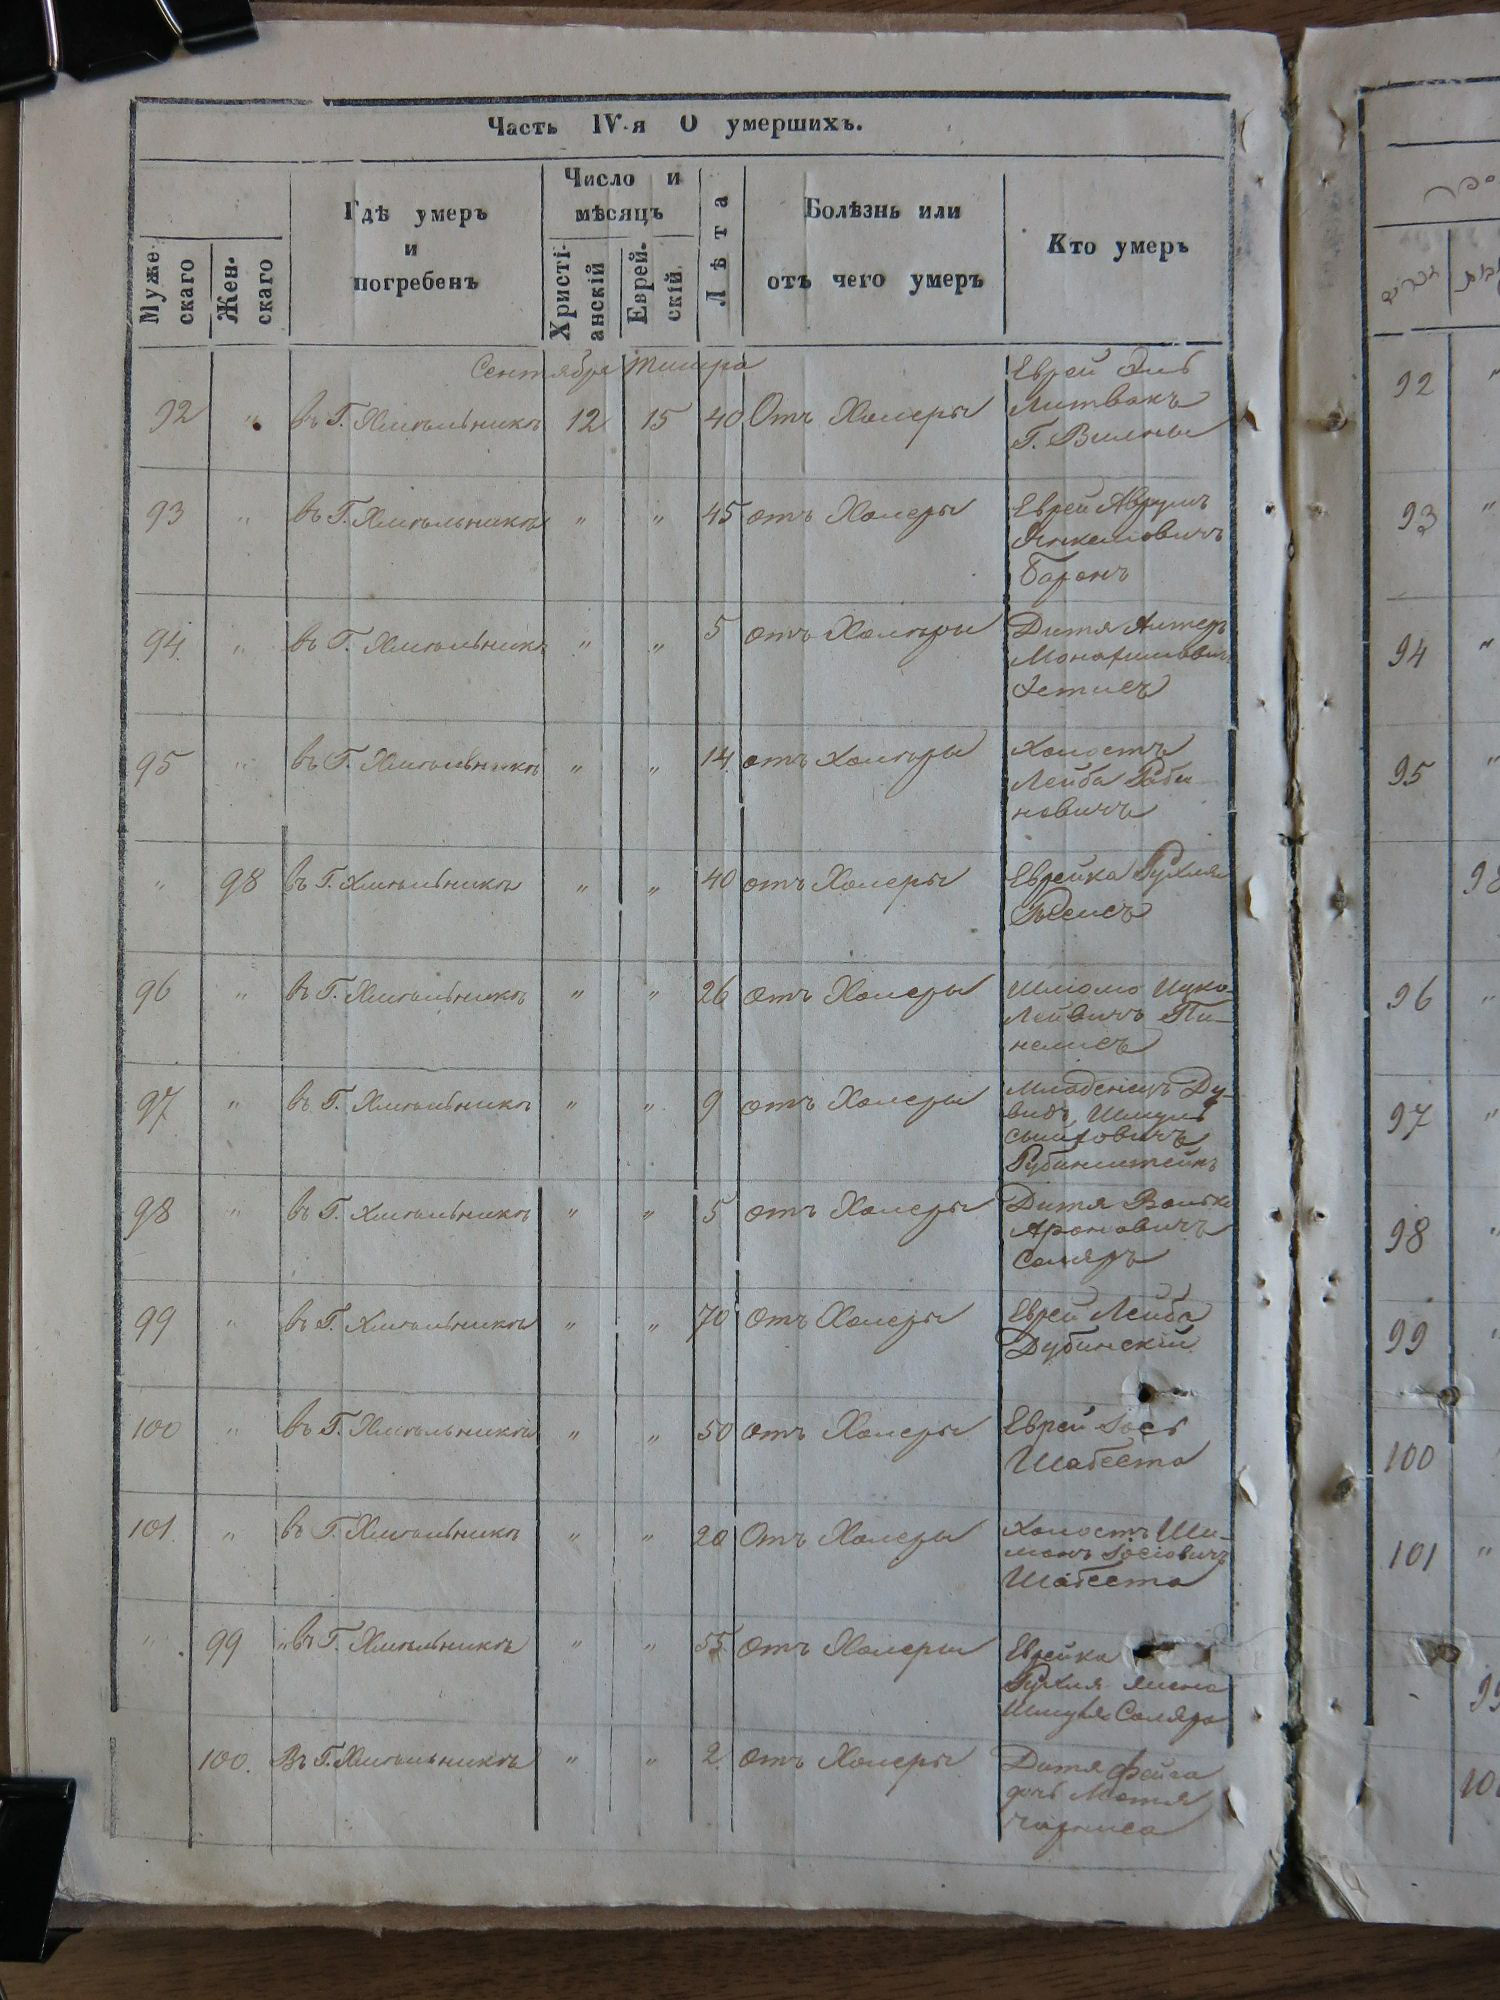 Часть IV-я О умершихъ.
Муже-скаго Жен-скаго Гдѣ умеръ и погребенъ Число и мѣсяцъ Христі-анскій Еврей-скій Лѣта Болѣзнь или отъ чего умеръ Кто умеръ
Сентября Тишра
92 " въ Г. Хмѣльникѣ 12 15 40 Отъ Холеры Еврей
Литвакъ
Г. Вильны
93 " въ Г. Хмѣльникѣ " " 45 отъ Холеры Еврей Аврумъ
Янкелевичъ
Баронъ
94 " въ Г. Хмѣльникѣ " " 5 отъ Холѣры Дитя Алтеръ
95 " въ Г. Хмѣльникѣ " " 14 отъ холѣры Холостъ
Лейба Раби-
новичъ
" 98 въ Г. Хмѣльникѣ " " 40 отъ Холеры Еврейка Рухля
96 " въ Г. Хмѣльникѣ " " 26 отъ Холеры Шлiомо Ицко-
Лейвичъ Пи-
нелисъ
97 " въ Г. Хмѣльникѣ " " 9 отъ Холеры Младенецъ Ду-
видъ Шмуль
Рубинштейнъ
98 " въ Г. Хмѣльникѣ " " 5 отъ Холеры Дитя Волько
Ароновичъ
Соляръ
99 " въ Г. Хмѣльникѣ " " 70 отъ Холеры Еврей Лейба
Дубинскій
100 " въ Г. Хмѣльникѣ " " 50 отъ Холеры Еврей Іось
Шабеста
101 " въ Г. Хмѣльникѣ " " 20 Отъ Холеры Холостъ Ши-
монъ Іосіовичъ
Шабеста
" 99 въ Г. Хмѣльникѣ " " 55 отъ Холеры Еврейка
Рухля жена
Шмуля Соляра
100. Въ Г. Хмѣльникѣ " " 2 отъ Холеры Дитя Фейга
дочь Мотя
Чарниса
92 "
93 "
94 "
95 "
96 "
97 "
98 "
99 "
100
101 "